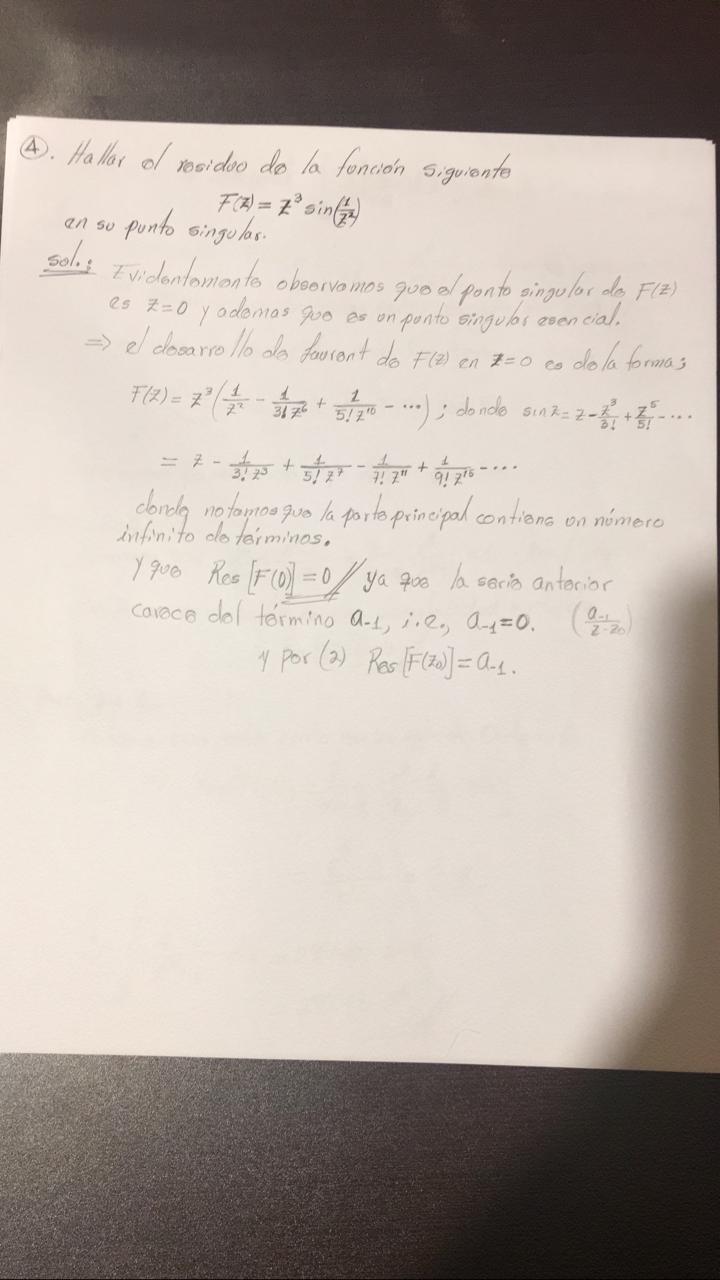 ④. Hallar el residuo de la función siguiente
F(z) = z³ sin(1/z²)
en su punto singular.
sol.: Evidentemente observamos que el punto singular de F(z)
es z=0 y ademas que es un punto singular esencial.
⇒ el desarrollo de Laurent de F(z) en z=0 es de la forma;
F(z) = z³(1/z² - 1/3!z⁶ + 1/5!z¹⁰ - ⋯) ; donde sin z = z - z³/3! + z⁵/5! - ⋯
= z - 1/3!z³ + 1/5!z⁷ - 1/7!z¹¹ + 1/9!z¹⁵ - ⋯
donde notamos que la parte principal contiene un número
infinito de términos.
Y que Res[F(0)] = 0 // ya que la serie anterior
carece del término a₋₁, i.e., a₋₁=0. (a₋₁/z-z₀)
y por (2) Res[F(z₀)] = a₋₁.